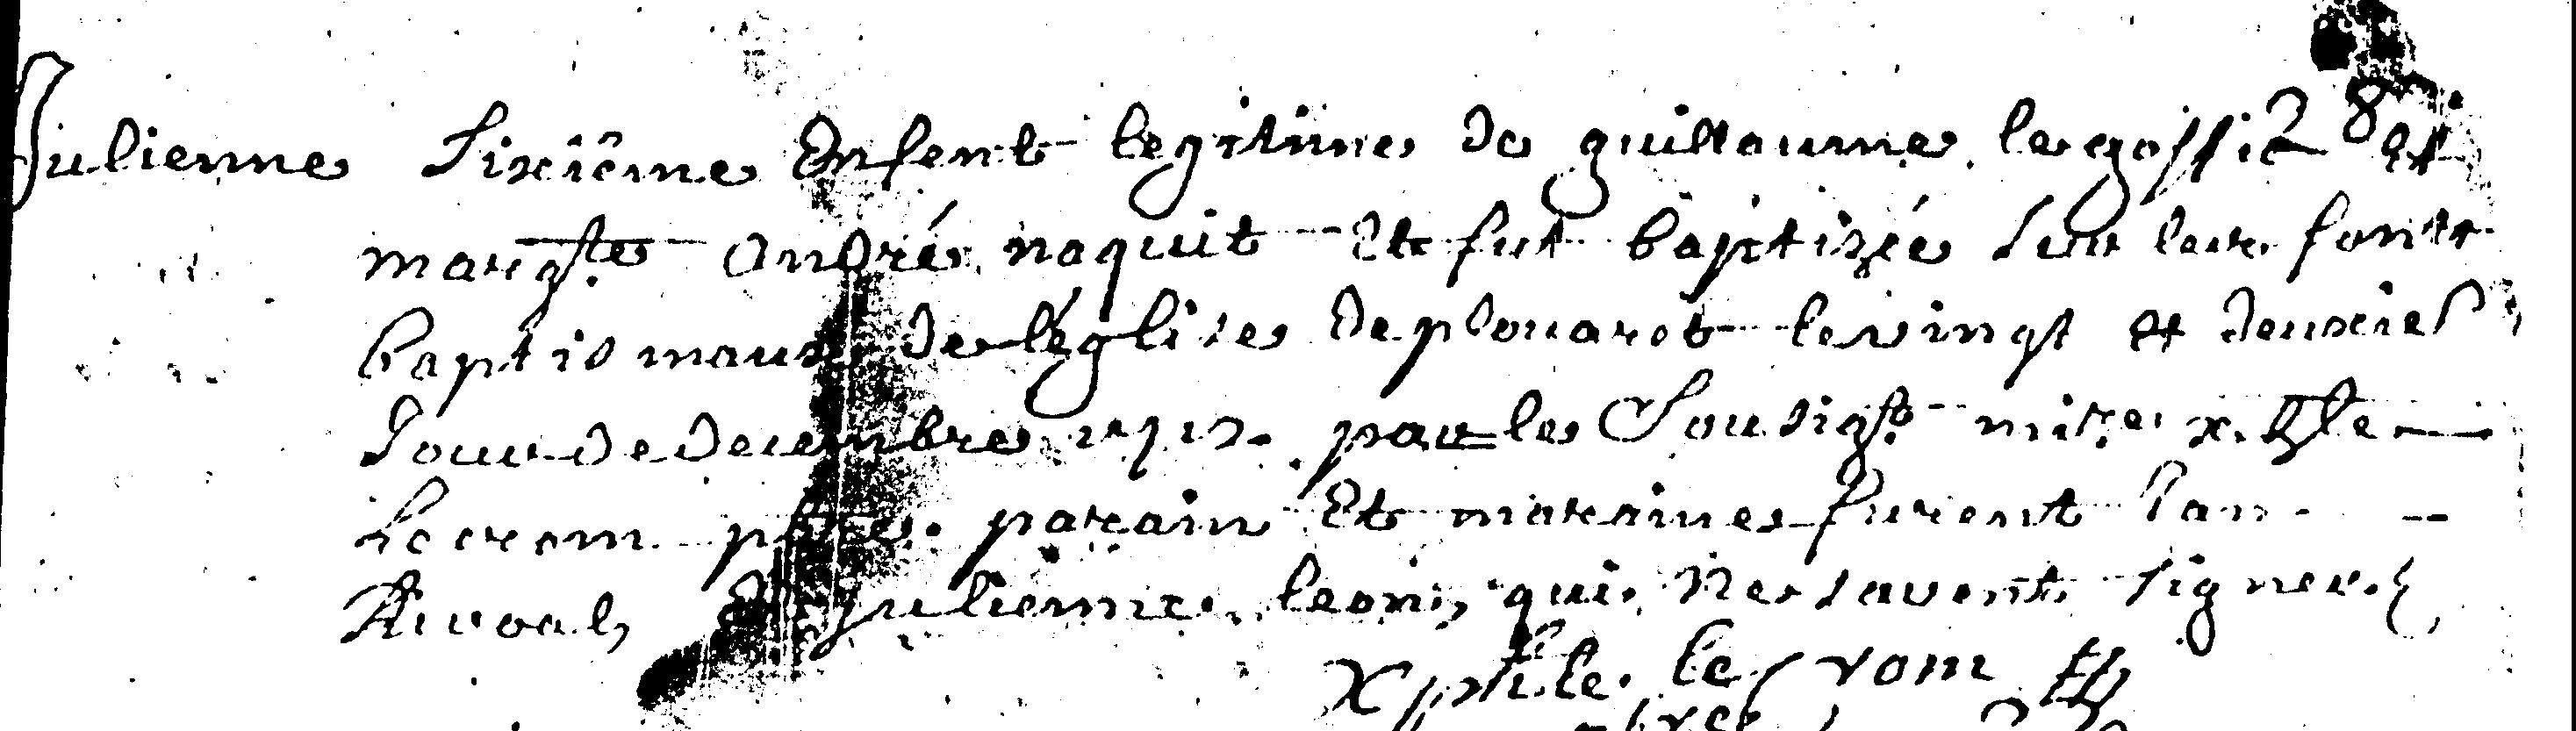 Julienne Sixiême Enfent legitime de guillaume le goffic et
margte André naquit Et fut baptizée sur les fonts
baptismaux de léglise de plouaret le vingt et deuxie
Jour de decembre par le Sousigt mire
parain Et maraine furent Jan
Rivoal Et julienne leon, qui Ne savent signer
le rom